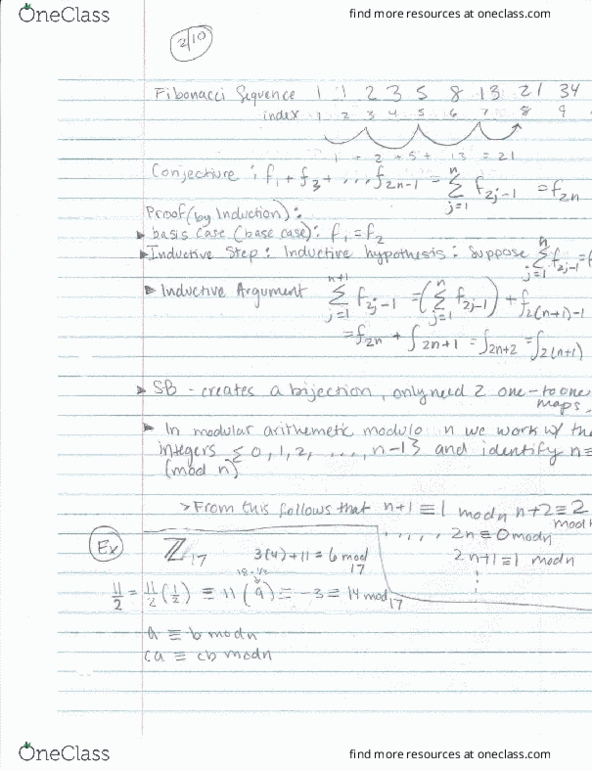 OneClass find more resources at oneclass.com
2/10
Fibonacci Sequence 1 1 2 3 5 8 13 21 34
index 1 2 3 4 5 6 7 8 9
1 + 2 + 5 + 13 = 21
Conjecture : f₁ + f₃ + ... f₂ₙ₋₁ = Σⁿⱼ₌₁ f₂ⱼ₋₁ = f₂ₙ
Proof (by Induction):
▸ basis Case (base case): f₁ = f₂
▸ Inductive Step : Inductive hypothesis : Suppose Σⁿⱼ₌₁ f₂ⱼ₋₁ = f
▸ Inductive Argument Σⁿ⁺¹ⱼ₌₁ f₂ⱼ₋₁ = (Σⁿⱼ₌₁ f₂ⱼ₋₁) + f₂₍ₙ₊₁₎₋₁
= f₂ₙ + f₂ₙ₊₁ = f₂ₙ₊₂ = f₂₍ₙ₊₁₎
▸ SB - creates a bijection, only need 2 one-to-one
maps.
▸ In modular arithemetic modulo n we work w/ the
integers {0, 1, 2, ..., n-1} and identify n ≡
(mod n)
> From this follows that n+1 ≡ 1 mod n n+2 ≡ 2
mod n
..... 2n ≡ 0 mod n
2n+1 ≡ 1 mod n
Ex ℤ₁₇ 3(4)+11 = 6 mod
17
18·1/2
11/2 = 11/2 (1/2) ≡ 11 (9) ≡ -3 ≡ 14 mod 17
a ≡ b mod n
ca ≡ cb mod n
OneClass find more resources at oneclass.com